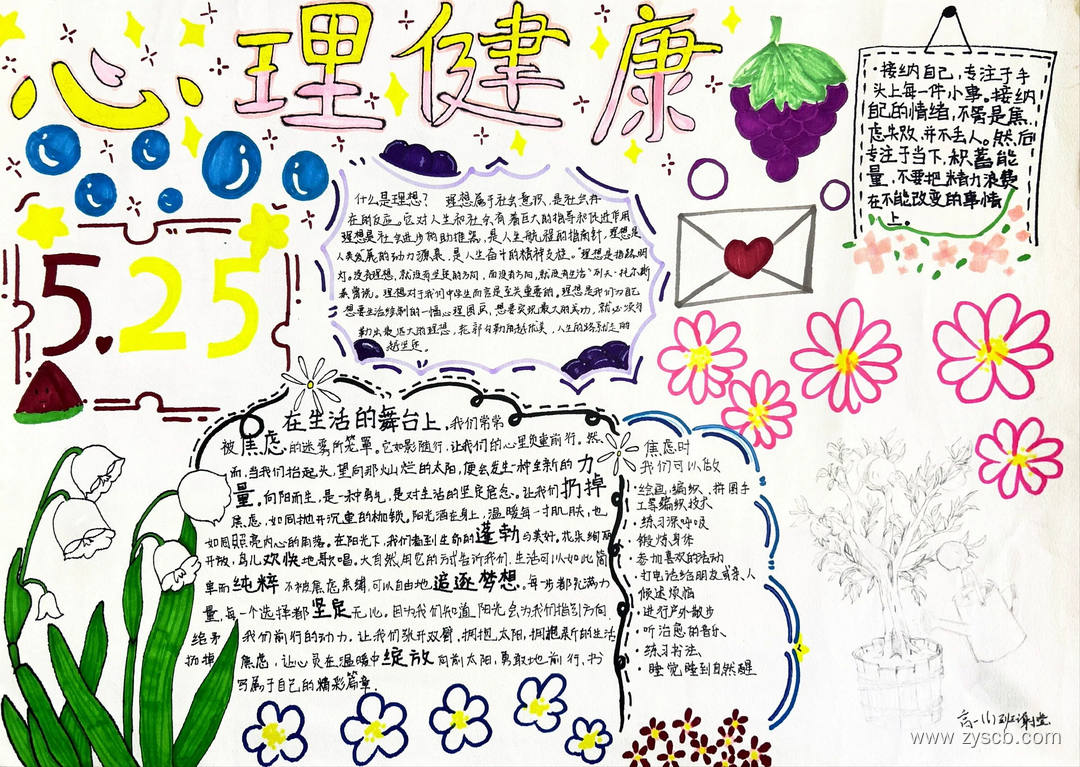 心理健康
·接纳自己,专注于手
头上每一件小事。接纳
自己的情绪,不管是焦
虑失败,并不丢人。然后
专注于当下,积蓄能
量,不要把精力浪费
在不能改变的事情
上。
5.25
什么是理想? 理想属于社会意识,是社会存
在的反应。它对人生和社会有着巨大的指导和促进作用
理想是社会进步的助推器,是人生航程的指南针,理想是
人类发展的动力源泉,是人生奋斗的精神支柱。“理想是指路明
灯。没有理想,就没有坚定的方向,而没有方向,就没有生活”列夫·托尔斯
泰曾说。理想对于我们中学生而言是至关重要的。理想是我们为自己
想要生活绘制的一幅心理图画,想要实现最大的成功,就必须勾
勒出最远大的理想,轮廓勾勒的越优美,人生的路就走的
越坚定。
在生活的舞台上,我们常常
被焦虑的迷雾所笼罩。它如影随行,让我们的心里负重前行。然
而,当我们抬起头,望向那灿烂的太阳,便会发生一种全新的力
量。向阳而生,是一种勇气,是对生活的坚定信念。让我们扔掉
焦虑,如同抛开沉重的枷锁。阳光洒在身上,温暖每一寸肌肤,也
如同照亮内心的角落。在阳光下,我们看到生命的蓬勃与美好。花朵绚丽
开放,鸟儿欢快地歌唱。大自然用它的方式告诉我们,生活可以如此简
单而纯粹 不被焦虑束缚,可以自由地追逐梦想。每一步都充满力
量,每一个选择都坚定无比。因为我们知道,阳光会为我们指引方向
给予 我们前行的动力。让我们张开双臂,拥抱太阳,拥抱新的生活
扔掉 焦虑,让心灵在温暖中绽放 向前太阳,勇敢地前行,书
写属于自己的精彩篇章.
焦虑时
我们可以做
·绘画,编织,拼图手
工等编织技术
·练习深呼吸
·锻炼身体
·参加喜欢的活动
·打电话给朋友或亲人
倾述烦恼
·进行户外散步
·听治愈的音乐
·练习书法
·睡觉睡到自然醒
www.zyscb.com